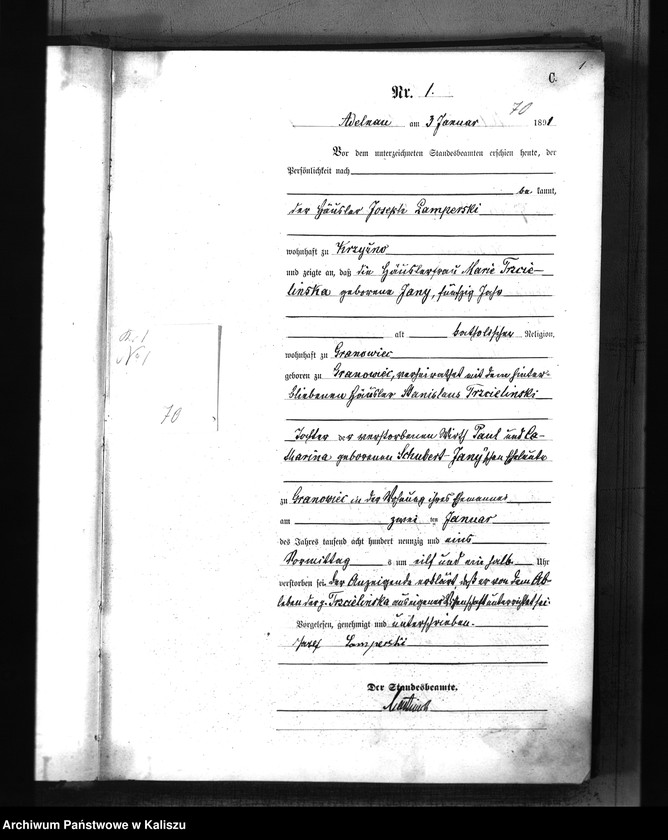 C. 1
Nr. 1.
70
Adelnau am 3 Januar 1891
Vor dem unterzeichneten Standesbeamten erschien heute, der
Persönlichkeit nach
be kannt,
der Häusler Joseph Lamperski
wohnhaft zu Krzyżno
und zeigte an, daß die Häuslerfrau Marie Trzcie-
linska geborene Jany, fünfzig Jahr
alt katholischer Religion,
wohnhaft zu Granowiec
geboren zu Granowiec, verheirathet mit dem hinter-
bliebenen Häusler Stanislaus Trzcielinski
Tochter der verstorbenen Wirth Paul und Ca-
tharina geborenen Schubert-Jany'schen Eheleute
zu Granowiec in der Wohnung ihres Ehemannes
am zwei ten Januar
des Jahres tausend acht hundert neunzig und eins
Vormittag s um eilf und ein halb Uhr
verstorben sei. Der Anzeigende erklärt, daß er von dem Ab-
leben der p. Trzcielinska aus eigener Wissenschaft unterrichtet sei.
Vorgelesen, genehmigt und unterschrieben.
Jozef Lamperski
Der Standesbeamte.
No 1
70
Archiwum Państwowe w Kaliszu